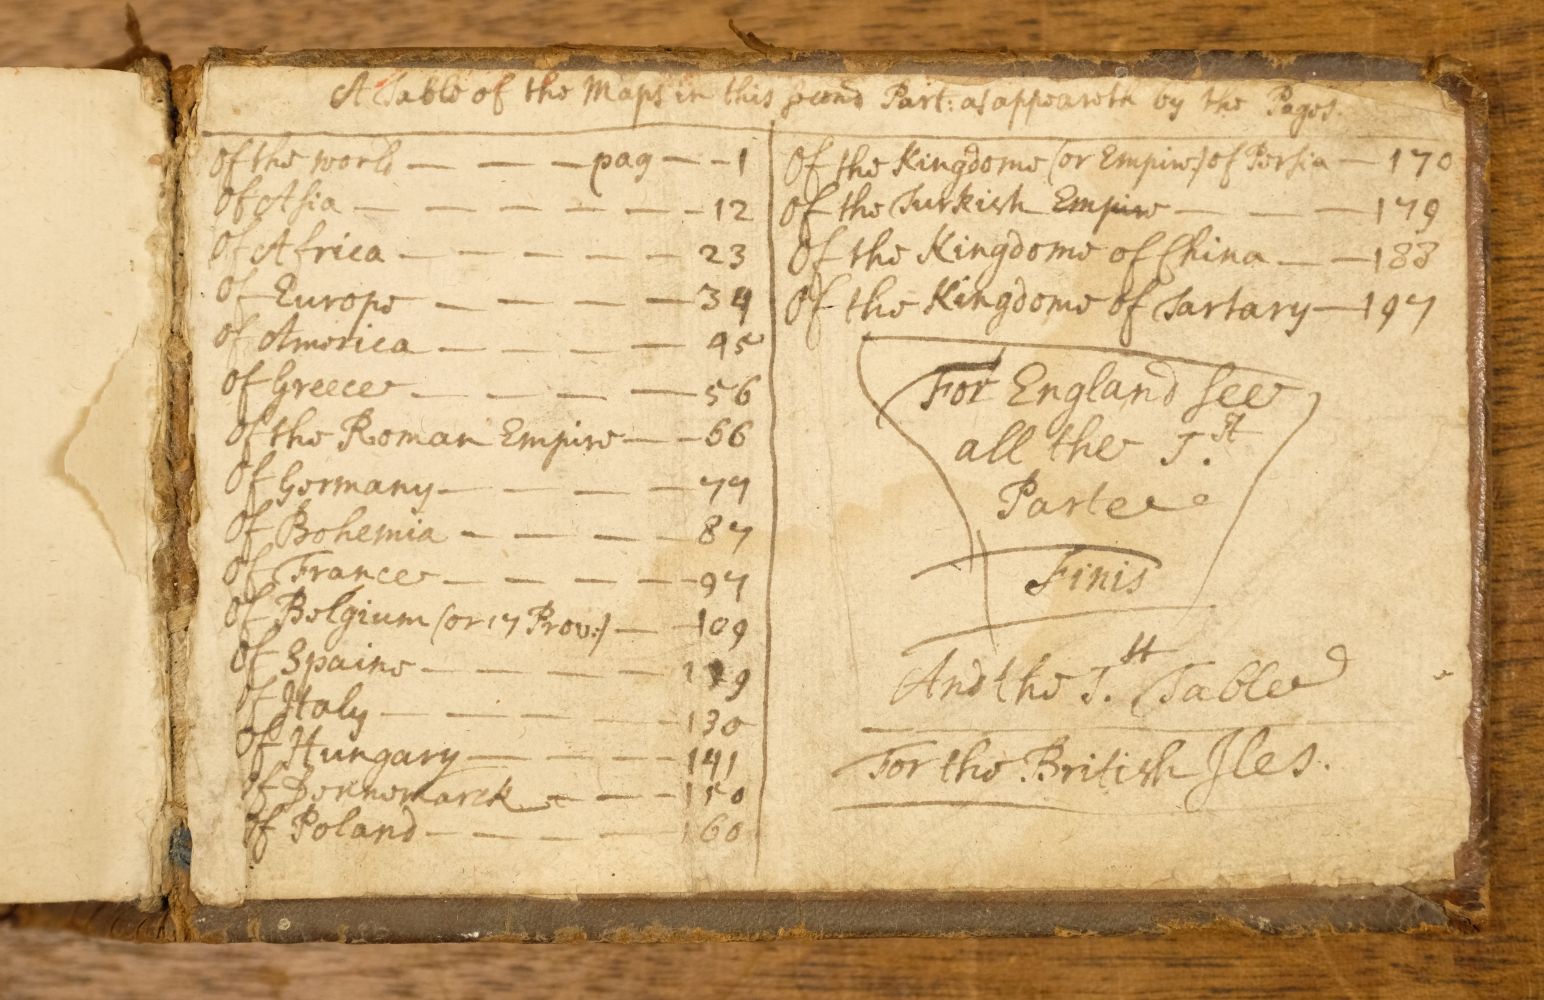 A Table of the Maps in this second Part: as appeareth by the Pages.
Of the world — — — pag — - 1
Of Asia — — — — — — - 12
Of Africa — — — — — — 23
Of Europe — — — — 34
Of America — — — — 45
Of Greece — — — — 56
Of the Roman Empire — - 66
Of Germany — — — — 77
Of Bohemia — — — — 87
Of France — — — — - 97
Of Belgium (or 17 Prov:) — - 109
Of Spaine — — — — — 119
Of Italy — — — — — 130
Of Hungary — — — — 141
Of Dennemarck — — — 150
Of Poland — — — — 160
Of the Kingdome (or Empire) of Persia — 170
Of the Turkish Empire — — — 179
Of the Kingdome of China — — 188
Of the Kingdome of Tartary — 197
For England see
all the I.st
Parte
Finis
And the I.st Table
For the British Iles.